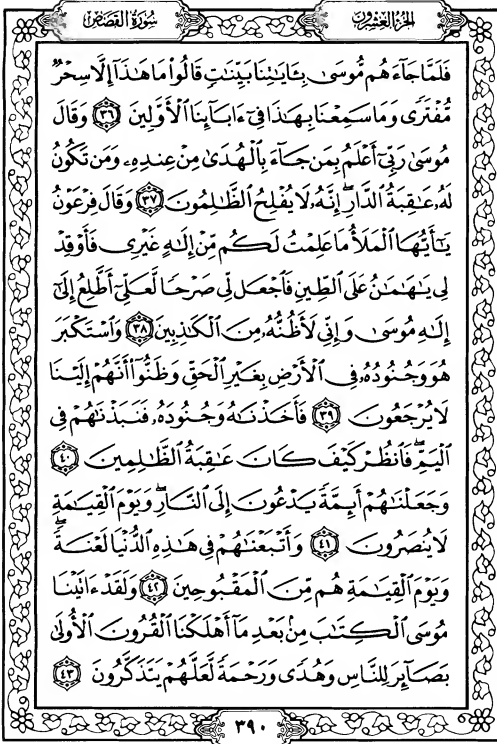 سُورَةُ القَصَصِ
الجُزْءُ العِشْرُونَ
فَلَمَّا جَآءَهُم مُّوسَىٰ بِـَٔايَٰتِنَا بَيِّنَٰتٍ قَالُوا۟ مَا هَٰذَآ إِلَّا سِحْرٌ
مُّفْتَرًى وَمَا سَمِعْنَا بِهَٰذَا فِىٓ ءَابَآئِنَا ٱلْأَوَّلِينَ ٣٦ وَقَالَ
مُوسَىٰ رَبِّىٓ أَعْلَمُ بِمَن جَآءَ بِٱلْهُدَىٰ مِنْ عِندِهِۦ وَمَن تَكُونُ
لَهُۥ عَٰقِبَةُ ٱلدَّارِۖ إِنَّهُۥ لَا يُفْلِحُ ٱلظَّٰلِمُونَ ٣٧ وَقَالَ فِرْعَوْنُ
يَٰٓأَيُّهَا ٱلْمَلَأُ مَا عَلِمْتُ لَكُم مِّنْ إِلَٰهٍ غَيْرِى فَأَوْقِدْ
لِى يَٰهَٰمَٰنُ عَلَى ٱلطِّينِ فَٱجْعَل لِّى صَرْحًا لَّعَلِّىٓ أَطَّلِعُ إِلَىٰٓ
إِلَٰهِ مُوسَىٰ وَإِنِّى لَأَظُنُّهُۥ مِنَ ٱلْكَٰذِبِينَ ٣٨ وَٱسْتَكْبَرَ
هُوَ وَجُنُودُهُۥ فِى ٱلْأَرْضِ بِغَيْرِ ٱلْحَقِّ وَظَنُّوٓا۟ أَنَّهُمْ إِلَيْنَا
لَا يُرْجَعُونَ ٣٩ فَأَخَذْنَٰهُ وَجُنُودَهُۥ فَنَبَذْنَٰهُمْ فِى
ٱلْيَمِّۖ فَٱنظُرْ كَيْفَ كَانَ عَٰقِبَةُ ٱلظَّٰلِمِينَ ٤٠
وَجَعَلْنَٰهُمْ أَئِمَّةً يَدْعُونَ إِلَى ٱلنَّارِۖ وَيَوْمَ ٱلْقِيَٰمَةِ
لَا يُنصَرُونَ ٤١ وَأَتْبَعْنَٰهُمْ فِى هَٰذِهِ ٱلدُّنْيَا لَعْنَةًۖ
وَيَوْمَ ٱلْقِيَٰمَةِ هُم مِّنَ ٱلْمَقْبُوحِينَ ٤٢ وَلَقَدْ ءَاتَيْنَا
مُوسَى ٱلْكِتَٰبَ مِنۢ بَعْدِ مَآ أَهْلَكْنَا ٱلْقُرُونَ ٱلْأُولَىٰ
بَصَآئِرَ لِلنَّاسِ وَهُدًى وَرَحْمَةً لَّعَلَّهُمْ يَتَذَكَّرُونَ ٤٣
٣٩٠